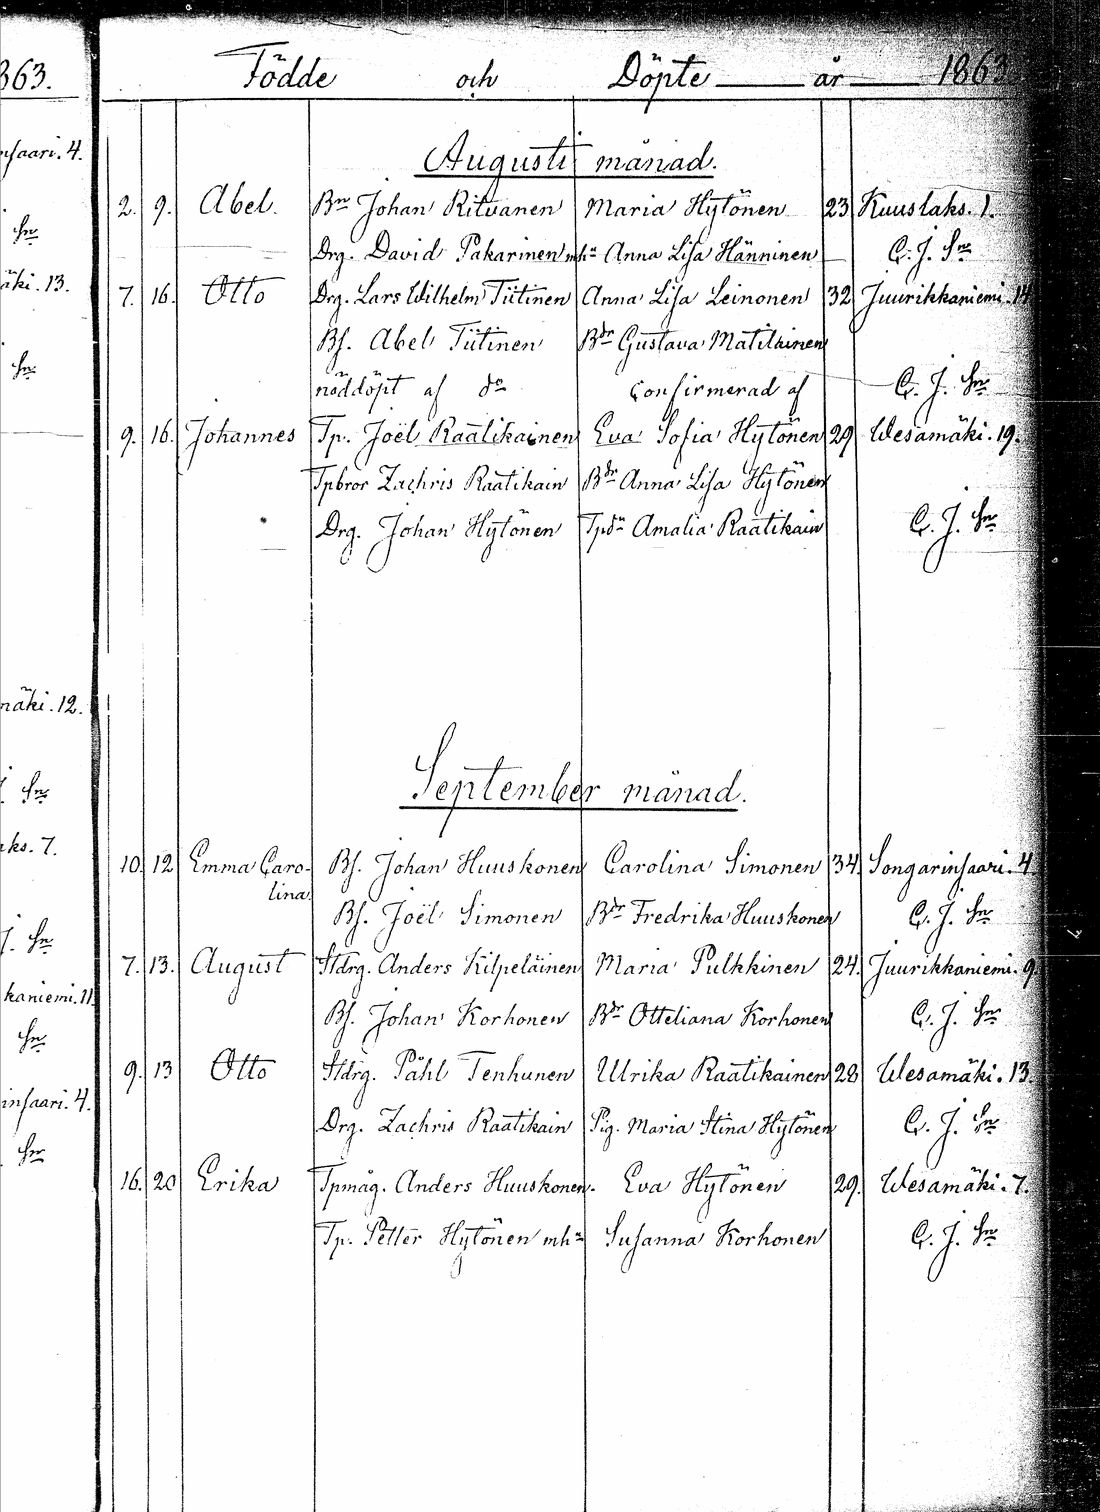 Födde och Döpte år 1863.
Augusti månad.
2. 9. Abel. Bn Johan Ritvanen Maria Hytönen 23 Kuuslaks. 1.
Drg. David Pakarinen mha Anna Lisa Hänninen C. J. Sn
7. 16. Otto Drg. Lars Wilhelm Tiitinen Anna Lisa Leinonen 32 Juurikkaniemi. 14
Bs. Abel Tiitinen Bdr Gustava Matilainen
nöddöpt af do Confirmerad af C. J. Sn
9. 16. Johannes Tp. Joël Raatikainen Eva Sofia Hytönen 29 Wesamäki. 19.
Tpbror Zachris Raatikain Bdr Anna Lisa Hytönen
Drg. Johan Hytönen Tpdr Amalia Raatikain C. J. Sn
September månad.
10. 12 Emma Caro- Bs. Johan Huuskonen Carolina Simonen 34. Songarinsaari. 4
lina. Bs. Joël Simonen Bdr Fredrika Huuskonen C. J. Sn
7. 13. August Stdrg. Anders Kilpeläinen Maria Pulkkinen 24. Juurikkaniemi. 9.
Bs. Johan Korhonen Bdr Otteliana Korhonen C. J. Sn
9. 13 Otto Stdrg. Påhl Tenhunen Ulrika Raatikainen 28 Wesamäki. 13.
Drg. Zachris Raatikain Pig. Maria Stina Hytönen C. J. Sn
16. 20 Erika Tpmåg. Anders Huuskonen. Eva Hytönen 29. Wesamäki. 7.
Tp. Petter Hytönen mha Susanna Korhonen C. J. Sn